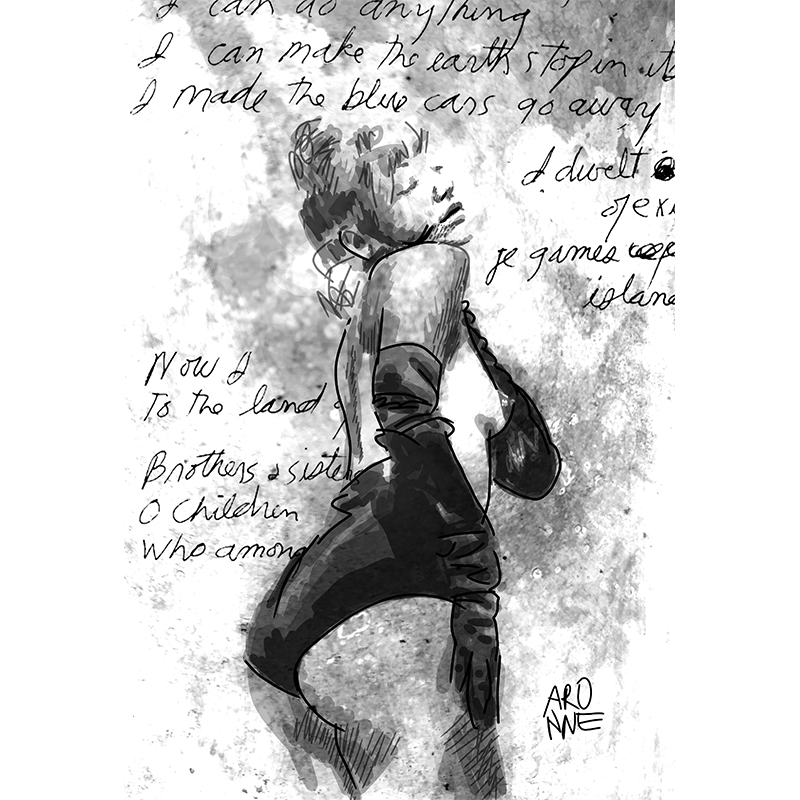 I can do anything
I can make the earth stop in its
I made the blue cars go away
I dwelt
of ex
je games
island
Now I
To the land
Brothers & sisters
O children
Who among
ARO
NNE